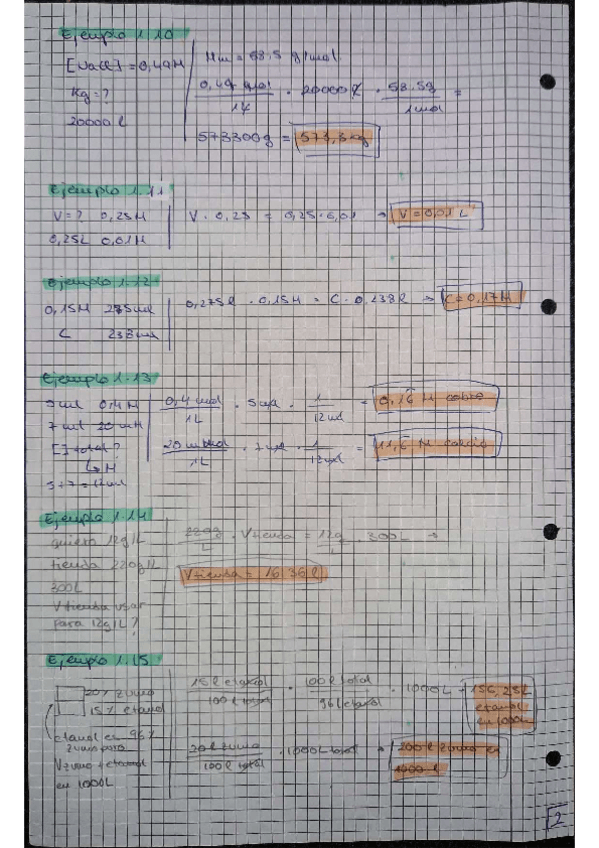 Ejemplo 1.10
[NaCl] = 0,49M
Kg = ?
20000 l
Mm = 58.5 g/mol
0,49 mol / 1l · 20000 l · 58.5g / 1 mol =
573300g = 573,3 kg
Ejemplo 1.11
V = ? 0,25M
0,25L 0,01M
V · 0,25 = 0,25 · 0,01 → V = 0,01 L
Ejemplo 1.12
0,15M 275ml
C 238ml
0,275l · 0,15M = C · 0,238l → C = 0,17M
Ejemplo 1.13
5ml 0,4M
7ml 20mM
[] total?
↳ M
5 + 7 = 12ml
0,4 mol / 1L · 5ml · 1 / 12ml = 0,16 M cobre
20 mmol / 1L · 7ml · 1 / 12ml = 11,6 M calcio
Ejemplo 1.14
quiero 12g/L
tienda 220g/L
300L
V tienda usar
para 12g/L?
220g / L · Vtienda = 12g / L · 300L →
Vtienda = 16'36 l
Ejemplo 1.15
20% zumo
15% etanol
etanol es 96%
V zumo + etanol
en 1000L
15 l etanol / 100 l total · 100 l total / 96 l etanol · 1000L = 156,25L
etanol
en 1000L
20 l zumo / 100 l total · 1000L total → 200 l zumo en
1000 l
2